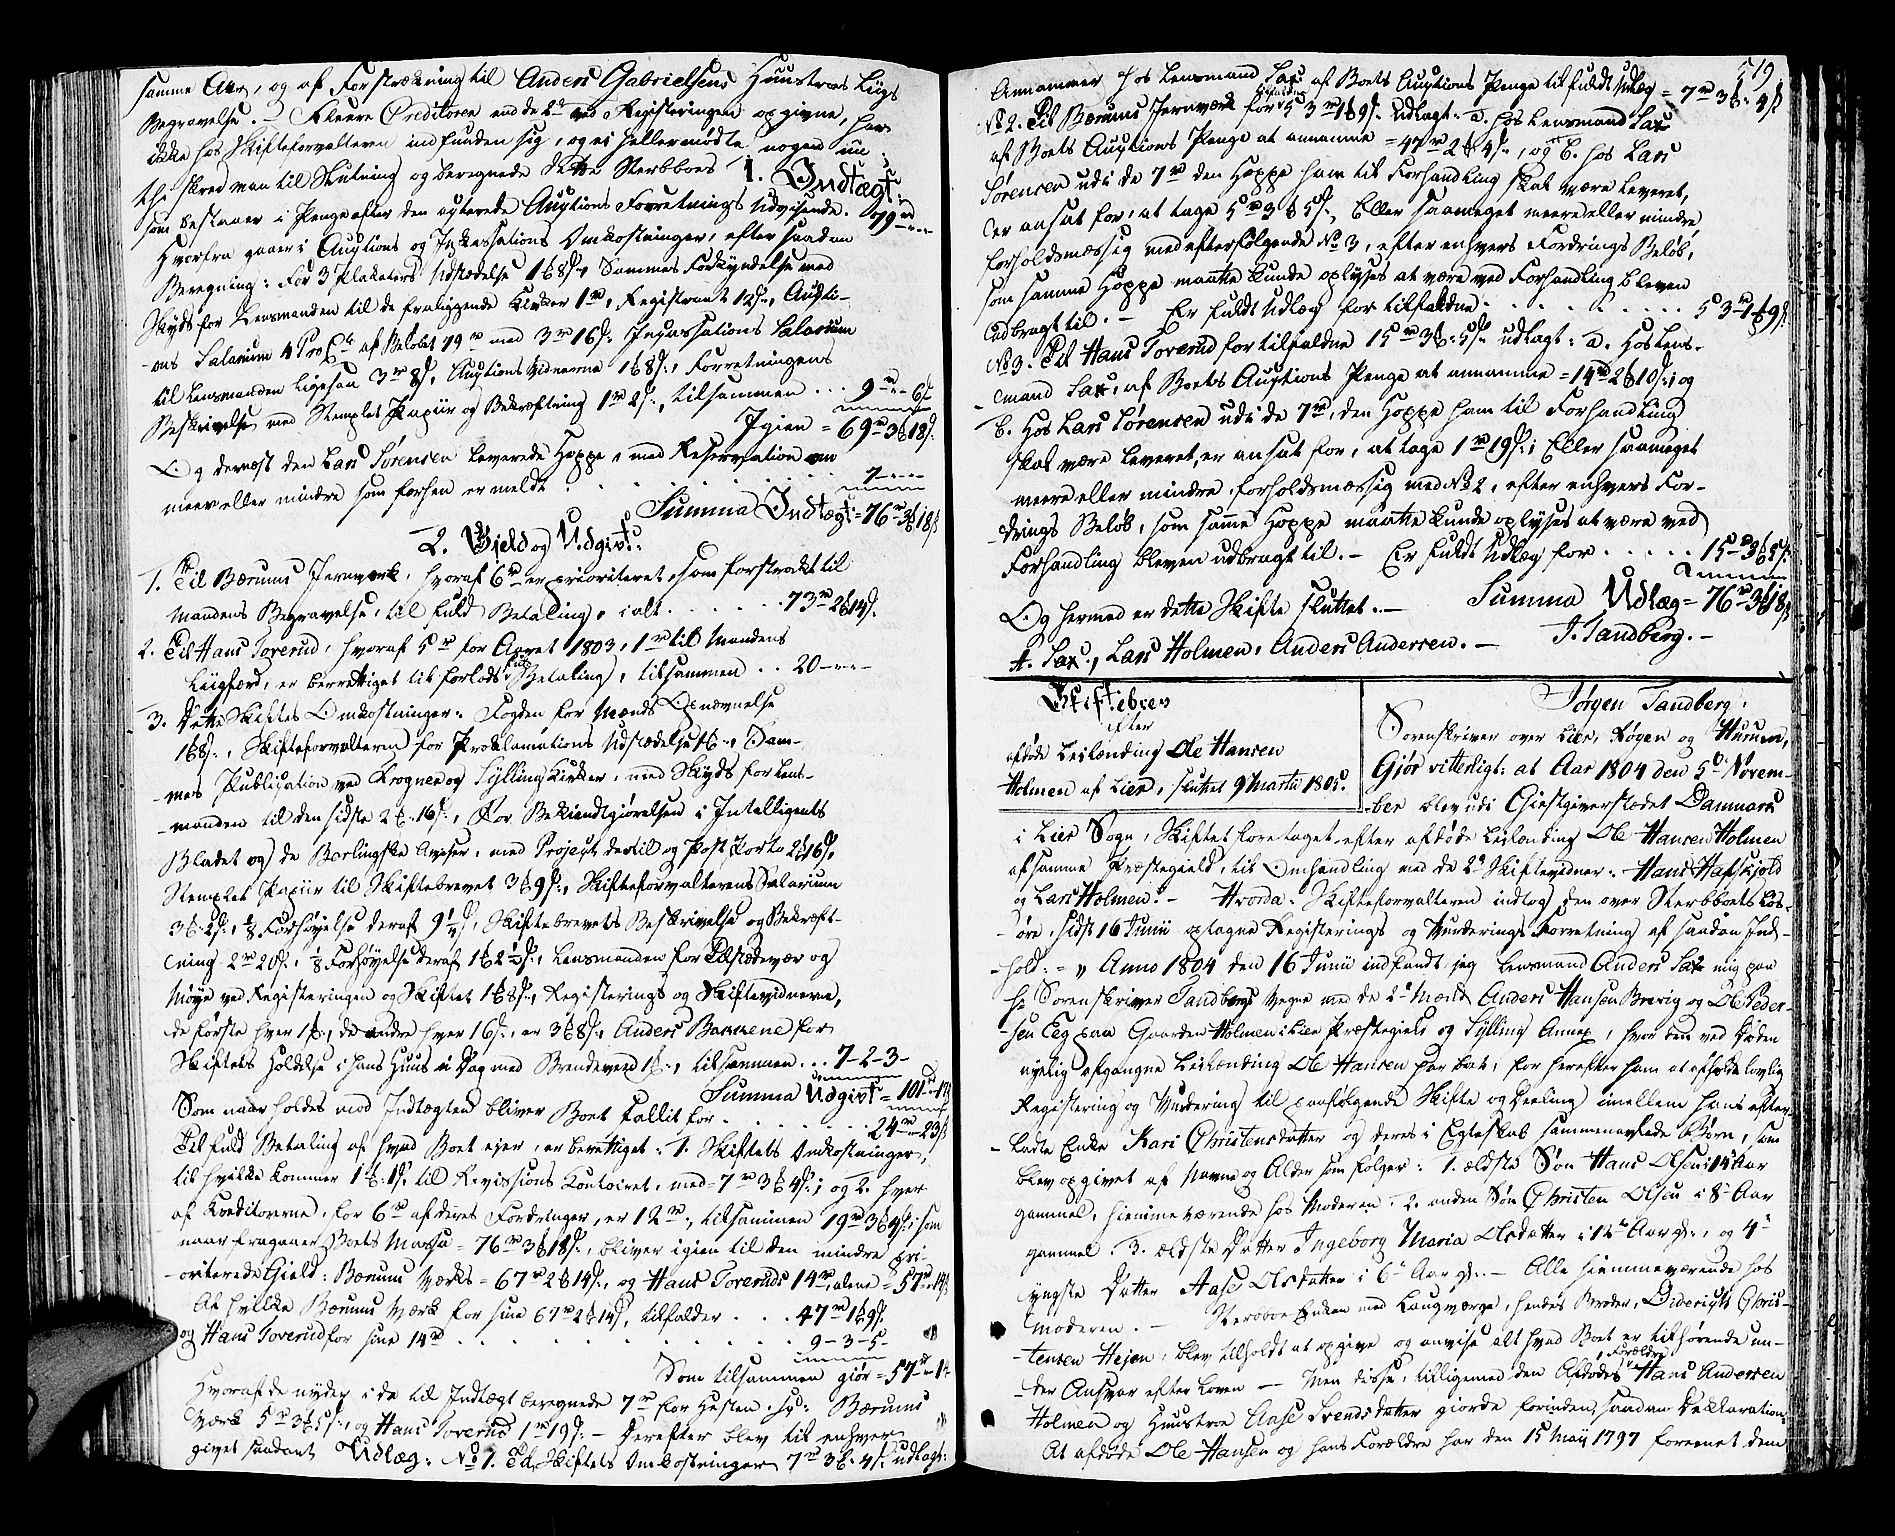 samme Aar, og af Forstrækning til Anders Gabrielsens Huustroes Liigs
Begravelse. - Fleere Creditorer end de 2de ved Registeringen opgivne, har
ikke hos Skifteforvalteren indfunden sig, og ei heller mødte nogen nu
thi skred man til Slutning og beregnede dette Sterbboes 1. Indtægt
som bestaaer i Penge efter den ayterede Auctions Forretnings Udvisende. 79 rd - -
Hvorfra gaaer i Auctions og Inkassations Omkostninger, efter saadan
Beregning: For 3 Plakaters Udstædelse 1 8s, Sammes Forkyndelse med
Skyds for Lensmanden til de fraliggende Kirker 1 rd, Registrant 12s, Aucti-
ons Salarium 4 ProCto af Beløbet 79 rd med 3 rd 16s, Incassations Salarium
til Lensmanden ligesaa 3 rd 8s, Auctions Vidnerne 1 8s, Forretningens
Beskrivelse med Stemplet Papiir og Bekræftning 1 rd 2s, tilsammen . . 9 rd - 6s
Igien = 69 rd 3 18s
Og dernæst den Lars Sørensen leverede Hoppe, med Reservation om
meer eller mindre som forhen er meldt . . . . 7 - - -
Summa Indtægt = 76 rd 3 18s
2. Gield og Udgivt:
1. Til Bærums Jernværk, hvoraf 6 rd er prioriteret, som forstrakt til
Mandens Begravelse, til fuld Betaling, i alt . . . . . 73 rd 2 14s
2. Til Hans Toverud, hvoraf 5 rd for Aaret 1803, 1 rd til Mandens
Liigfærd, er berettiget til forlods fuld Betaling, tilsammen . . 20 - - -
3. Dette Skiftes Omkostninger: Fogden for Mænds Opnævnelse
1 8s, Skifteforvalteren for Proklamations Udstædelse, Sam-
mes Publication ved Krogner og Sylling Kirker, med Skyds for Lens-
manden til den sidste 2 16s, For Bekiendtgiørelsen i Intelligents
Bladet og de Berlingske Aviser, med Project dertil og Post Porto 2 16s,
Stemplet Papiir til Skiftebrevet 3 9s, Skifteforvalterens Salarium
3 2s, 1/8 Forhøyelse deraf 9 1/4s, Skiftebrevets Beskrivelse og Bekræft-
ning 2 rd 20s, 1/8 Forhøyelse deraf 1 2 1/2s, Lensmanden for Tilstædevær og
Møye ved Registeringen og Skiftet 1 8s, Registerings og Skiftevidnerne,
de første hver 1, de andre hver 16s, er 3 8s, Anders Bakkene for
Skiftets Holdelse i hans Huus i Dag med Brendeved 1, tilsammen . . . 7-2-3-
Summa Udgivt = 101 rd - 17
Som naar holdes mod Indtægten bliver Boet fallit for . . . . . 24 rd - 23s
Til fuld Betaling af hvad Boet ejer, er berettiget: 1. Skiftets Omkostninger,
til hvilke kommer 1 1s til Revisions Contoiret, med = 7 rd 3 4s; og 2. hver
af Creditorerne, for 6 rd af deres Fordringer, er 12 rd, tilsammen 19 rd 3 4s; som
naar fragaaer Boets Massa = 76 rd 3 18s, bliver igien til den mindre pri-
oriterede Gield: Bærums Værks = 67 rd 2 14s, og Hans Toveruds 14 rd alene = 57 rd - 14s
Af hvilke Bærums Værk for sine 67 rd 2 14s, tilfalder . . . 47 rd 1 9s.
og Hans Toverud for sine 14 rd . . . . . . . 9-3-5-
Som tilsammen giør = 57 rd - 14
Hvoraf de nyder i de til Indtægt beregnede 7 rd for Hesten, sc: Bærums
Værk 5 rd 3 5s, og Hans Toverud 1 rd 19s. - Derefter blev til enhver
givet saadant Udlæg: No 1. Til Skiftets Omkostninger 7 rd 3 4s udlagt:
719
Annammer hos Lensmand Sax af Boets Auctions Penge til fuldt Udlæg = 7 rd 3 4s
No 2. Til Bærums Jernværk for tilfaldne 53 rd 1 9s udlagt: a. hos Lensmand Sax
af Boets Auctions Penge at annamme = 47 rd 2 4s, og b. hos Lars
Sørensen udi de 7 rd den Hoppe ham til Forhandling skal være leveret,
er ansat for, at tage 5 rd 3 5s, Eller saameget meere eller mindre,
forholdsmæssig med efterfølgende No 3, efter enhvers Fordrings Beløb,
som samme Hoppe maatte kunde oplyses at være ved Forhandling bleven
udbragt til. - Er fuldt Udlæg for tilfaldne . . . . . . . 53 rd 1 9s.
No 3. Til Hans Toverud for tilfaldne 15 rd 3 5s udlagt: a. Hos Lens-
mand Sax, af Boets Auctions Penge at annamme = 14 rd 2 10s; og
b. Hos Lars Sørensen udi de 7 rd, den Hoppe ham til Forhandling
skal være leveret, er ansat for, at tage 1 rd 19s; Eller saameget
meere eller mindre, forholdsmæssig med No 2, efter enhvers For-
drings Beløb, som samme Hoppe maatte kunde oplyses at være ved
Forhandling bleven udbragt til. - Er fuldt Udlæg for . . . . . 15 rd 3 5s.
Summa Udlæg = 76 rd 3 18s
Og hermed er dette Skifte sluttet. -
J. Tandberg. -
A. Sax, Lars Holmen, Anders Andersen. -
Skiftebrev
efter
afdøde Leilending Ole Hansen
Holmen af Lier, sluttet 9 Martii 1805.
Jørgen Tandberg,
Sorenskriver over Lier, Røgen og Hurum,
Giør vitterligt: at Aar 1804 den 5te Novem-
ber blev udi Giestgiverstædet Damaars
i Lier Sogn, Skiftet foretaget efter afdøde Leilending Ole Hansen Holmen
af samme Præstegield, til Omhandling med de 2de Skiftevidner: Hans Hafskjold
og Lars Holmen. - Hvorda: Skifteforvalteren indtog den over Sterbboets Løs-
øre, sidst 16 Junii optagne Registerings og Vurderings Forretning af saadan Ind-
hold: - Anno 1804 den 16 Junii indfandt jeg Lensmand Anders Sax mig paa
Hr Sorenskriver Tandbergs Vegne med de 2de Mænd Anders Hansen Brerig og Ole Peder-
sen Eeg paa Gaarden Holmen i Lier Præstegield og Sylling Annex, hvor den ved Døden
nyelig afgangne Leilending Ole Hansen har boet, for herefter ham at afholde lovlig
Registering og Vurdering til paafølgende Skifte og Deeling imellem hans efter-
ladte Enke Kari Christensdatter og deres i Egteskab sammenavlede Børn, som
blev opgivet af Navne og Alder som følger: 1. ældste Søn Hans Olsen i 14de Aar
gammel, hiemmeværende hos Moderen. 2. anden Søn Christen Olsen i 8de Aar
gammel. 3. ældste Datter Ingeborg Maria Olsdatter i 12te Aar gl:, og 4de
yngste Datter Aase Olsdatter i 6te Aar gl:. - Alle hiemmeværende hos
Moderen. - Sterbboe Enken med Laugværge, hendes Broder, Diderich Chris-
tensen Hejen, blev tilholdt at opgive og anvise alt hvad Boet er tilhørende un-
der Ansvar efter Loven - Men disse, tilligemed den Afdødes Forældre Hans Andersen
Holmen og Huustroe Aase Svendsdatter giorde forinden, saadan Deklaration:
At afdøde Ole Hansen og hans Forældre har den 15 Maij 1797 foreenet dem